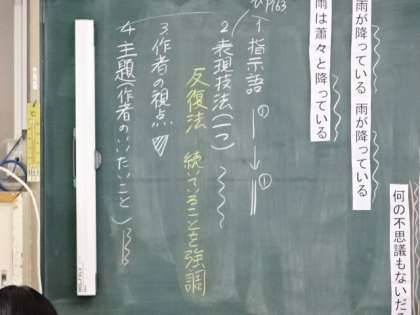 雨が降っている　雨が降っている
雨は蕭々と降っている
何の不思議もないだ
1963
1 指示語
②
①
2 表現技法(二つ)
反復法　続いていることを強調
3 作者の視点
4 主題(作者のいいたいこと)